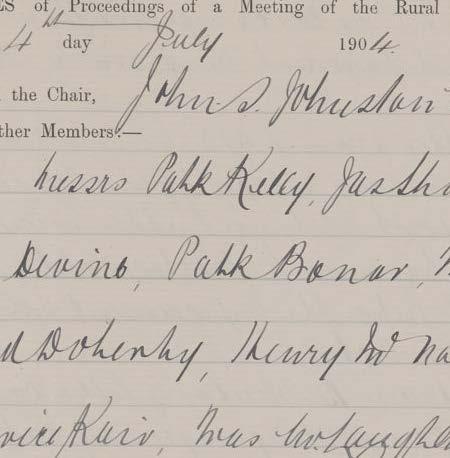 ES of Proceedings of a Meeting of the Rural
4th day July 1904.
the Chair, John S. Johnston
ther Members:—
Messrs Patk Kelly, Jas
Devine, Patk Bonar,
Doherty, Henry Mc
Kair, McLaughl